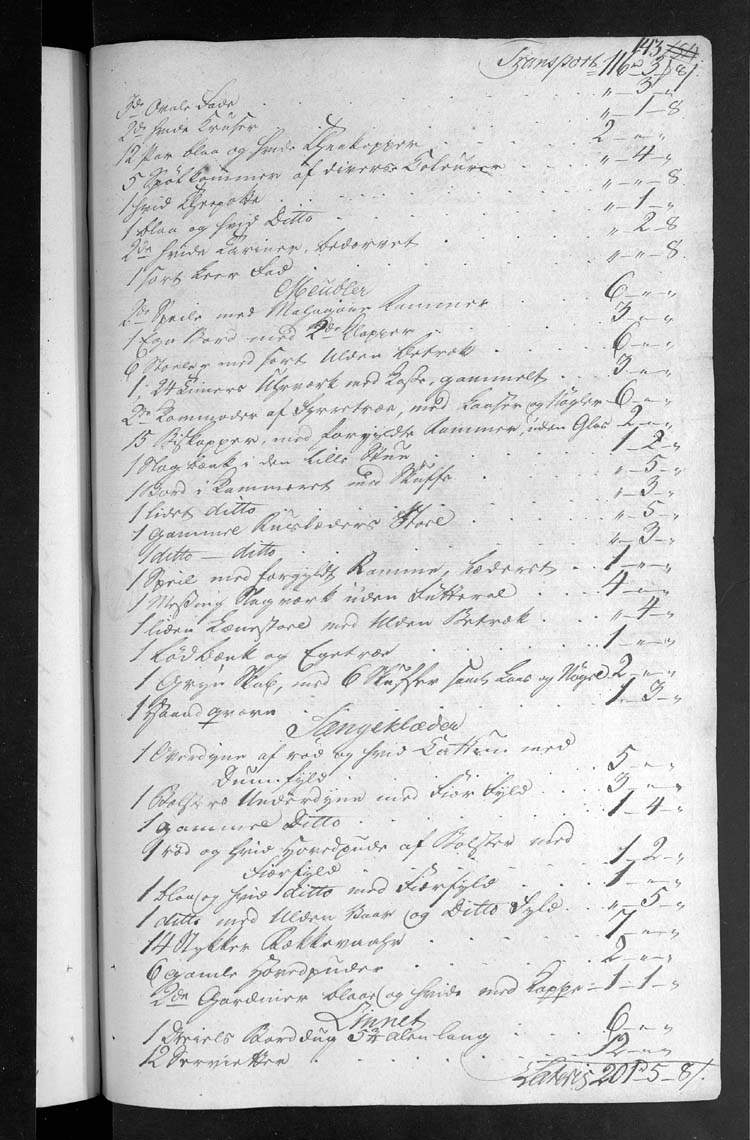 143
Transport 116 rd 3 p 8 s.
3de Ovale Fade . . . „ – 3 – „
2de hvide Kruser . . . „ – 1 – 8
12 Par blaa og hvide Theekopper . . . 2 – „ – „
5 Spölkommer af divers Coleurer . . . „ – 4 – „
1 hvid Theepotte . . . „ – „ – 8
1 blaa og hvid Ditto . . . „ – 1 – „
2de hvide Tariner, bedærvet . . . „ – 2 – 8
1 sort Leer Fad . . . „ – „ – 8
Meubler
2de Speile med Mahagoni Rammer . . . 6 – „ – „
1 Ege Bord med 2de Klapper . . . 3 – „ – „
6 Stoele med sort Ulden Betræk . . . 6 – „ – „
1, 24 Timers Uhrværk med Kasse, gammelt . . . 3 – „ – „
2de Kommoder af Fyrretræe, med Laaser og Nögler – 6 – „ – „
15 Biskopper, med forgyldte Rammer, uden Glas 2 – „ – „
1 Slagbænk i den lille Stue . . . 1 – 2 – „
1 Bord i Kammeret med Skuffe . . . „ – 5 – „
1 lidet ditto . . . „ – 3 – „
1 gammel Ruslæders Stoel . . . „ – 5 – „
1 ditto – ditto . . . „ – 3 – „
1 Speil med forgyldt Ramme, læderet . . 1 – „ – „
1 Messing Slagværk uden Futteral . . . 4 – „ – „
1 liden Lænestoel med Ulden Betræk . . . „ – 4 – „
1 Ködbænk og Egetræe . . . 1 – „ – „
1 Gryn Skab, med 6 Skuffer samt Laas og Nögel 2 – „ – „
1 Haand qværn . . . 1 – 3 – „
Sængeklæder
1 Overdyne af röd og hvid Cattun med
Duun fyld . . . 5 – „ – „
1 Bolsters Underdyne med Fiær Fyld . . . 3 – „ – „
1 gammel Ditto . . . 1 – 4 – „
9 röd og hvid Hovedpude af Bolster med
Fiærfyld . . . 1 – 2 – „
1 blaa og hvid ditto med Fiærfyld . . . 1 – „ – „
1 ditto med Ulden Vaar og Ditto Fyld . . „ – 5 – „
14 Stykker . . . 7 – „ – „
6 gamle Hovedpuder . . . 2 – „ – „
2de Gardiner blaae og hvide med Kappe – 1 – 1 – „
Linnet
1 Dreiels Borddug 5 3/4 Alen lang . . . 6 – „ – „
12 Servietter . . . 12 – „ – „
Lateris 201 rd 5 – 8 s.